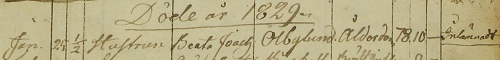 Döde år 1829.
Jan. 25 1/2 Hustrun Beata Joach. Olbylund. Ålderdom 78.10